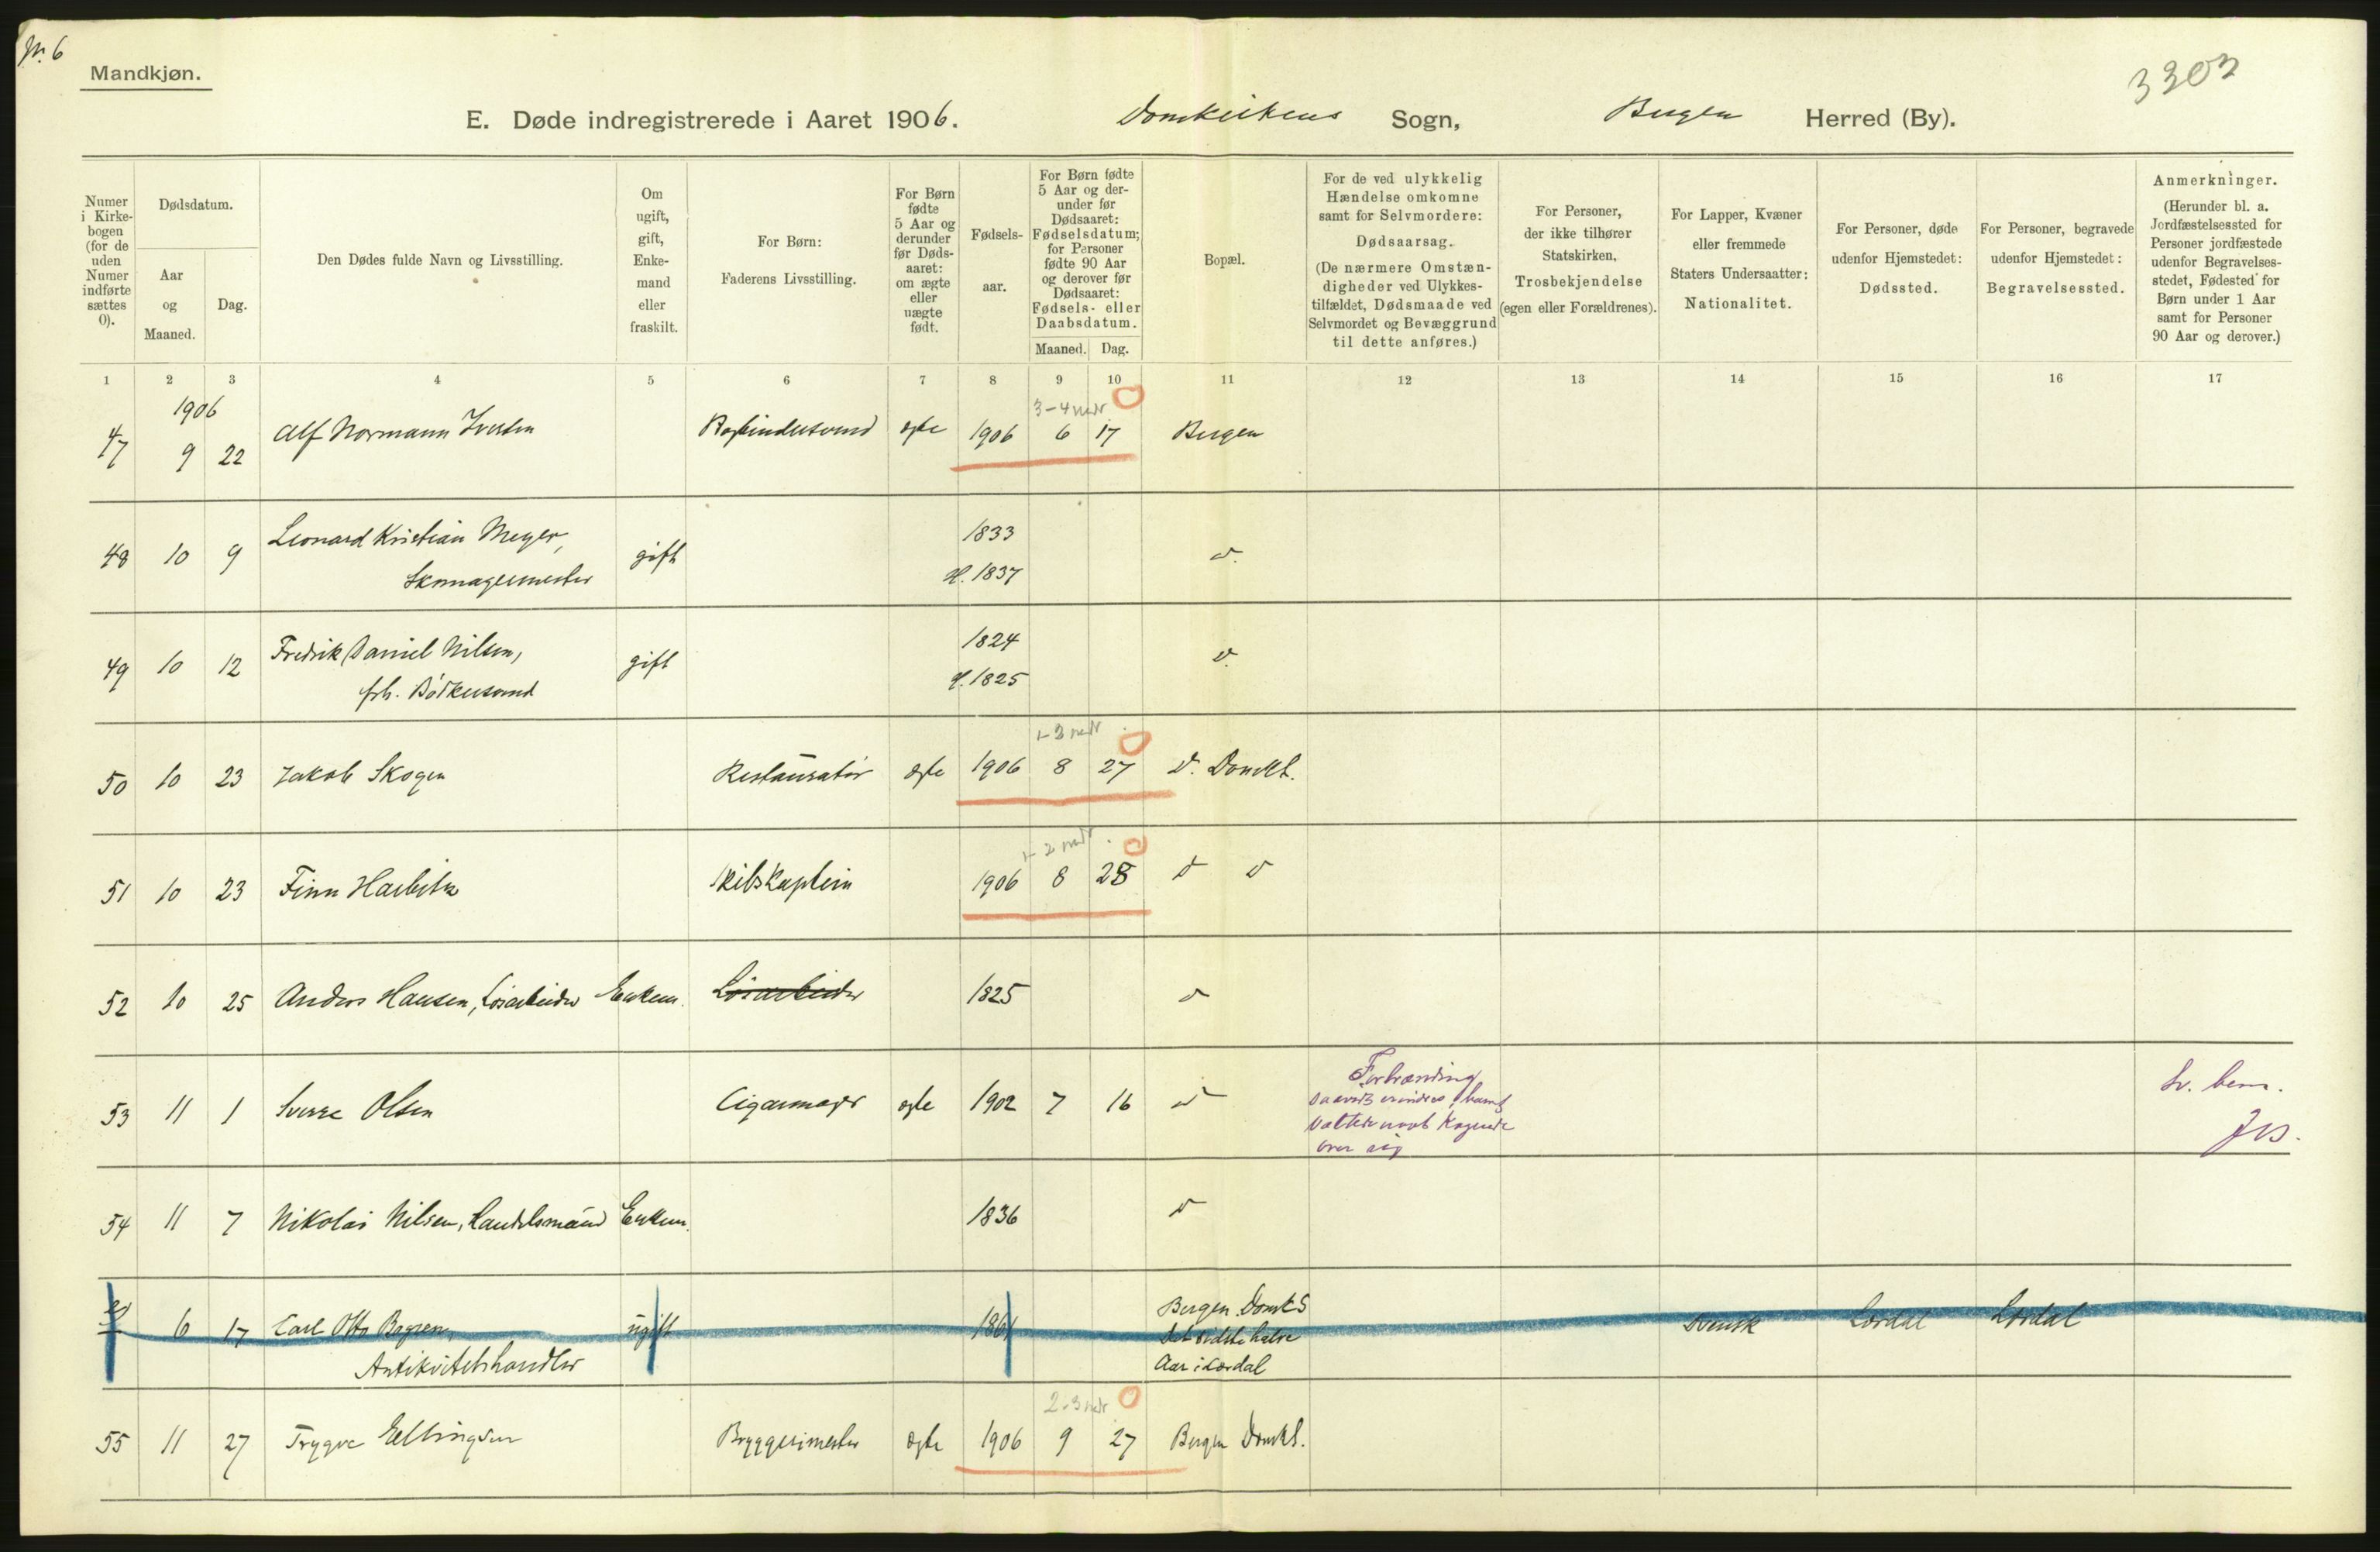 No. 6
Mandkjøn.
3303
E. Døde indregistrerede i Aaret 1906. Domkirkens Sogn, Bergen Herred (By).
Numer i Kirke-bogen (for de uden Numer indførte sættes 0).
Dødsdatum.
Aar og Maaned.
Dag.
Den Dødes fulde Navn og Livsstilling.
Om ugift, gift, Enke-mand eller fraskilt.
For Børn:
Faderens Livsstilling.
For Børn fødte 5 Aar og derunder før Døds-aaret: om ægte eller uægte født.
Fødsels-aar.
For Børn fødte 5 Aar og der-under før Dødsaaret: Fødselsdatum; for Personer fødte 90 Aar og derover før Dødsaaret: Fødsels- eller Daabsdatum.
Maaned. Dag.
Bopæl.
For de ved ulykkelig Hændelse omkomne samt for Selvmordere:
Dødsaarsag.
(De nærmere Omstæn-digheder ved Ulykkes-tilfældet, Dødsmaade ved Selvmordet og Bevæggrund til dette anføres.)
For Personer, der ikke tilhører Statskirken,
Trosbekjendelse
(egen eller Forældrenes).
For Lapper, Kvæner eller fremmede Staters Undersaatter:
Nationalitet.
For Personer, døde udenfor Hjemstedet:
Dødssted.
For Personer, begravede udenfor Hjemstedet:
Begravelsessted.
Anmerkninger.
(Herunder bl. a. Jordfæstelsessted for Personer jordfæstede udenfor Begravelses-stedet, Fødested for Børn under 1 Aar samt for Personer 90 Aar og derover.)
1 2 3 4 5 6 7 8 9 10 11 12 13 14 15 16 17
1906
3-4 mdr
47 9 22 Alf Normann Iversen Bogbindersvend ægte 1906 6 17 Bergen
48 10 9 Leonard Kristian Meyer, gift 1833 d.
Skomagermester H. 1837
49 10 12 Fredrik Daniel Nilsen, gift 1824 d.
frh. Bødkersvend H. 1825
1-2 mdr
50 10 23 Jakob Skogen Restauratør ægte 1906 8 27 D. Domk S.
1-2 mdr
51 10 23 Finn Skibskaptein 1906 8 28 d d
52 10 25 Anders Hansen, Løsarbeider Enkem. Løsarbeider 1825 d
53 11 1 Sverre Olsen Cigarmager ægte 1902 7 16 d
Forbrænding
over sig
54 11 7 Nikolai Nilsen, Handelsmand Enkem. 1836 d
6 17 Carl Otto ugift 1861 Bergen Domk S Svensk Lærdal Lærdal
Antikvitetshandler
Det sidste halve
Aar i Lærdal
2-3 mdr
55 11 27 Trygve Ellingsen Bryggerimester ægte 1906 9 27 Bergen Domk S.